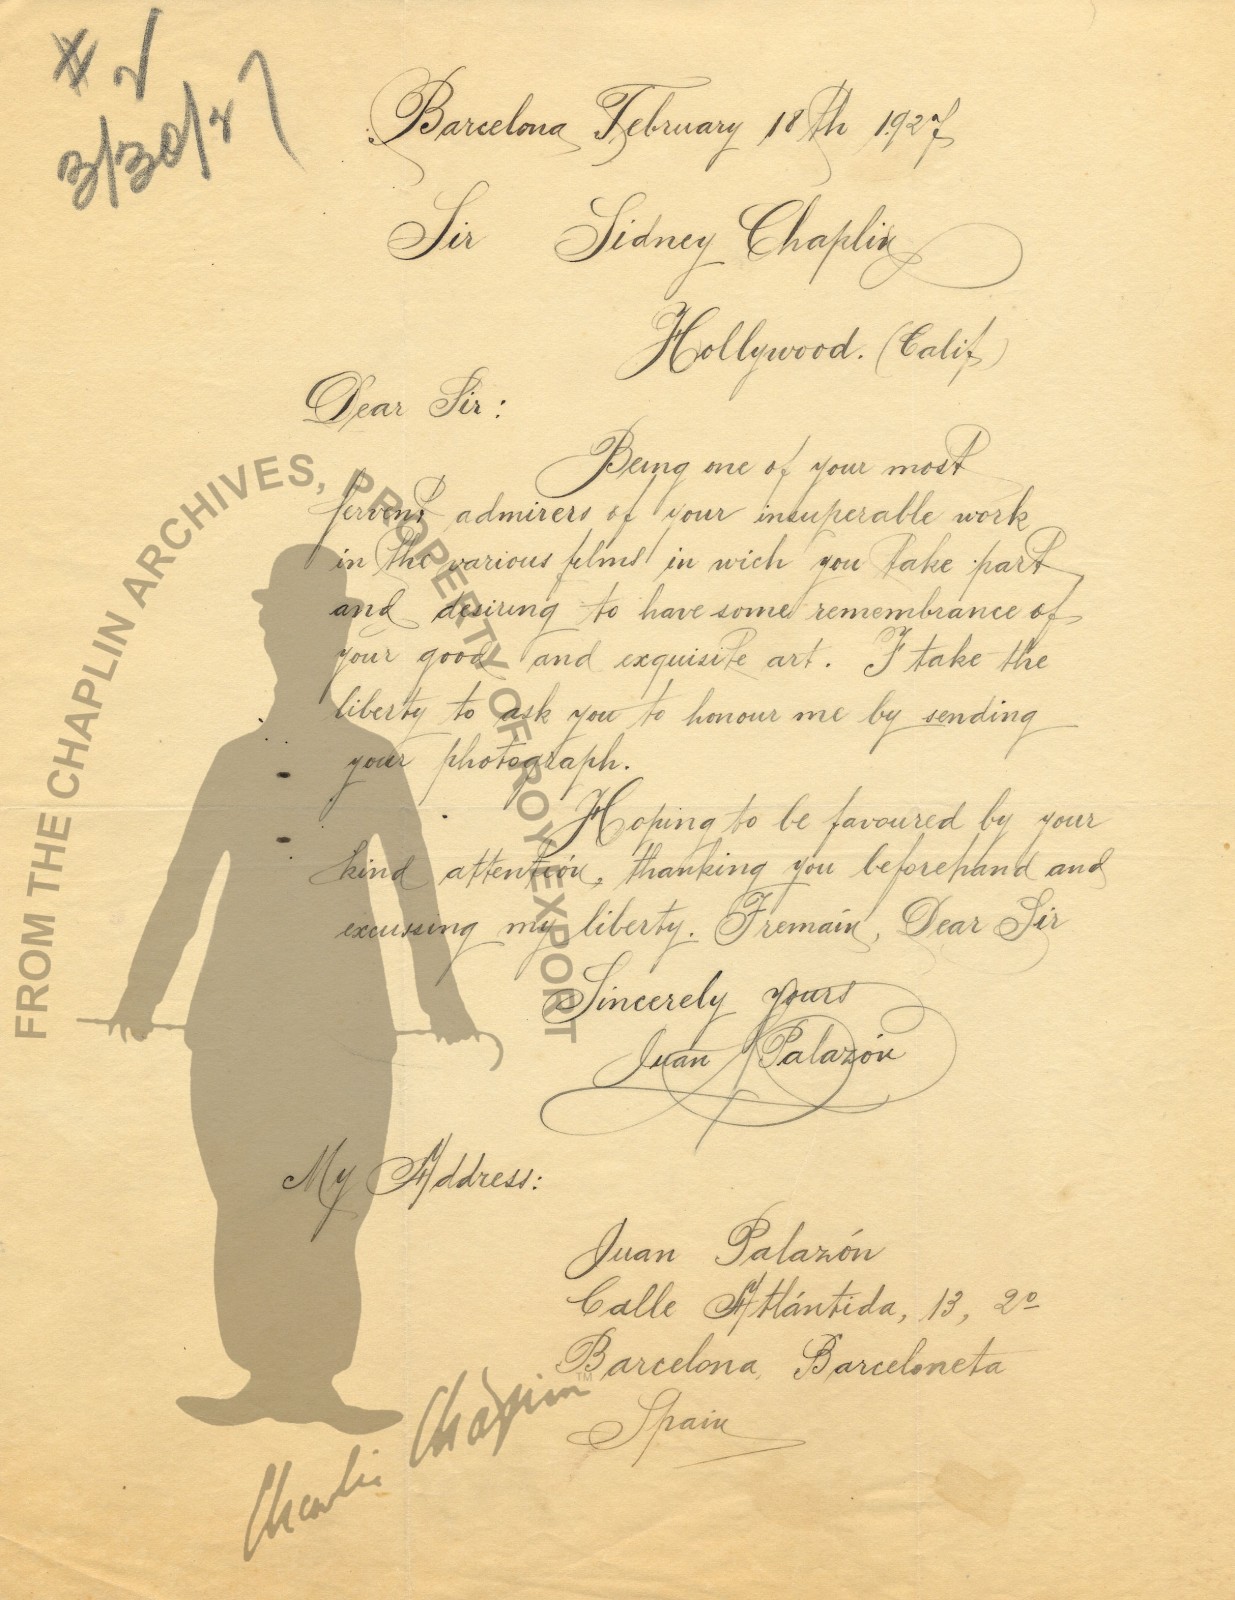 # 2
3/30/27
Barcelona February 18th 1927
Sir Sidney Chaplin
Hollywood. (Calif)
Dear Sir:
Being one of your most
fervent admirers of your insuperable work
in the various films in wich you take part
and desiring to have some remembrance of
your good and exquisite art. I take the
liberty to ask you to honour me by sending
your photograph.
Hoping to be favoured by your
kind attentión, thanking you beforehand and
excussing my liberty. I remain, Dear Sir
Sincerely yours
Juan Palazón
My Address:
Juan Palazón
Calle Atlántida, 13, 2º
Barcelona, Barceloneta
Spain
FROM THE CHAPLIN ARCHIVES, PROPERTY OF ROY EXPORT
Charlie Chaplin™